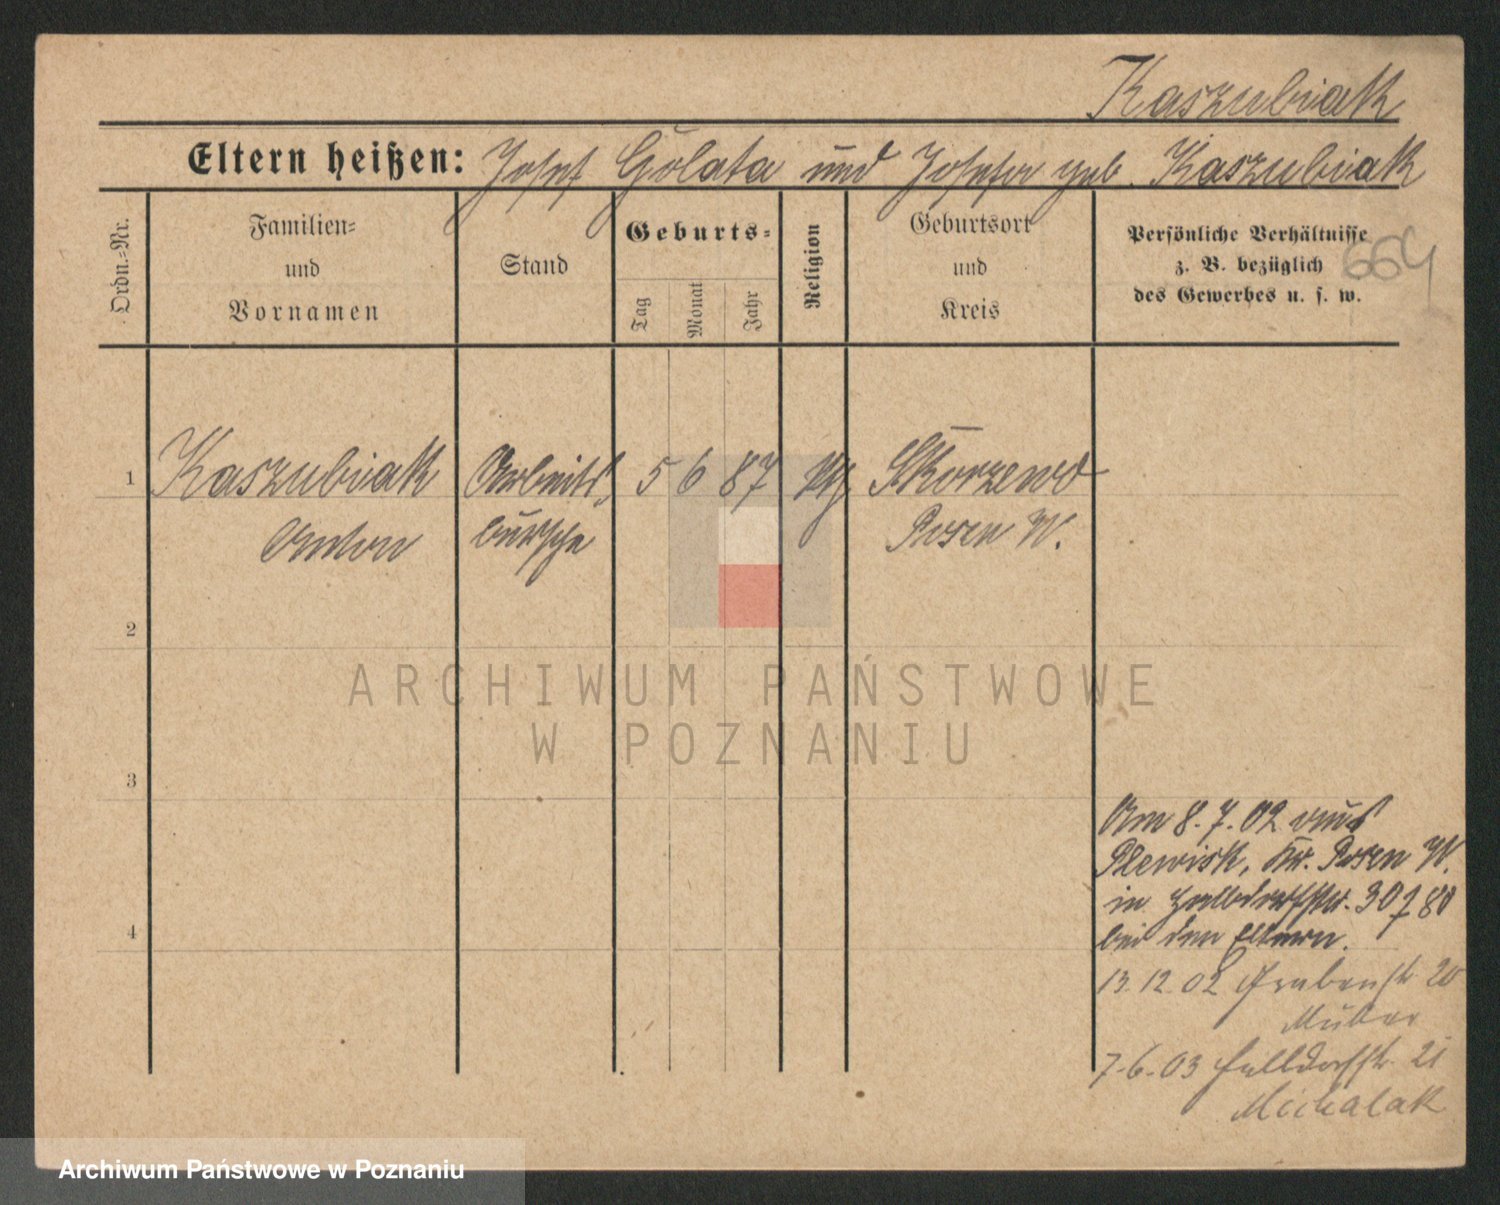 Kaszubiak
Eltern heißen: Josef Golata und Josefa geb. Kaszubiak
Ordn.-Nr.
Familien-
und
Vornamen
Stand
Geburts-
Tag
Monat
Jahr
Religion
Geburtsort
und
Kreis
Persönliche Verhältnisse
z. B. bezüglich
des Gewerbes u. s. w.
664
1 Kaszubiak Arbeits 5 6 87 Skorzewo
Anton bursche Posen W.
2
ARCHIWUM PAŃSTWOWE
W POZNANIU
3
4
Am 8.7.02 aus
Plewisk, Kr. Posen W.
in Halbdorfstr. 30
bei den Eltern.
13.12.02 Grabenstr 20
Mutter
7.6.03 Halbdorfstr. 21
Michalak
Archiwum Państwowe w Poznaniu